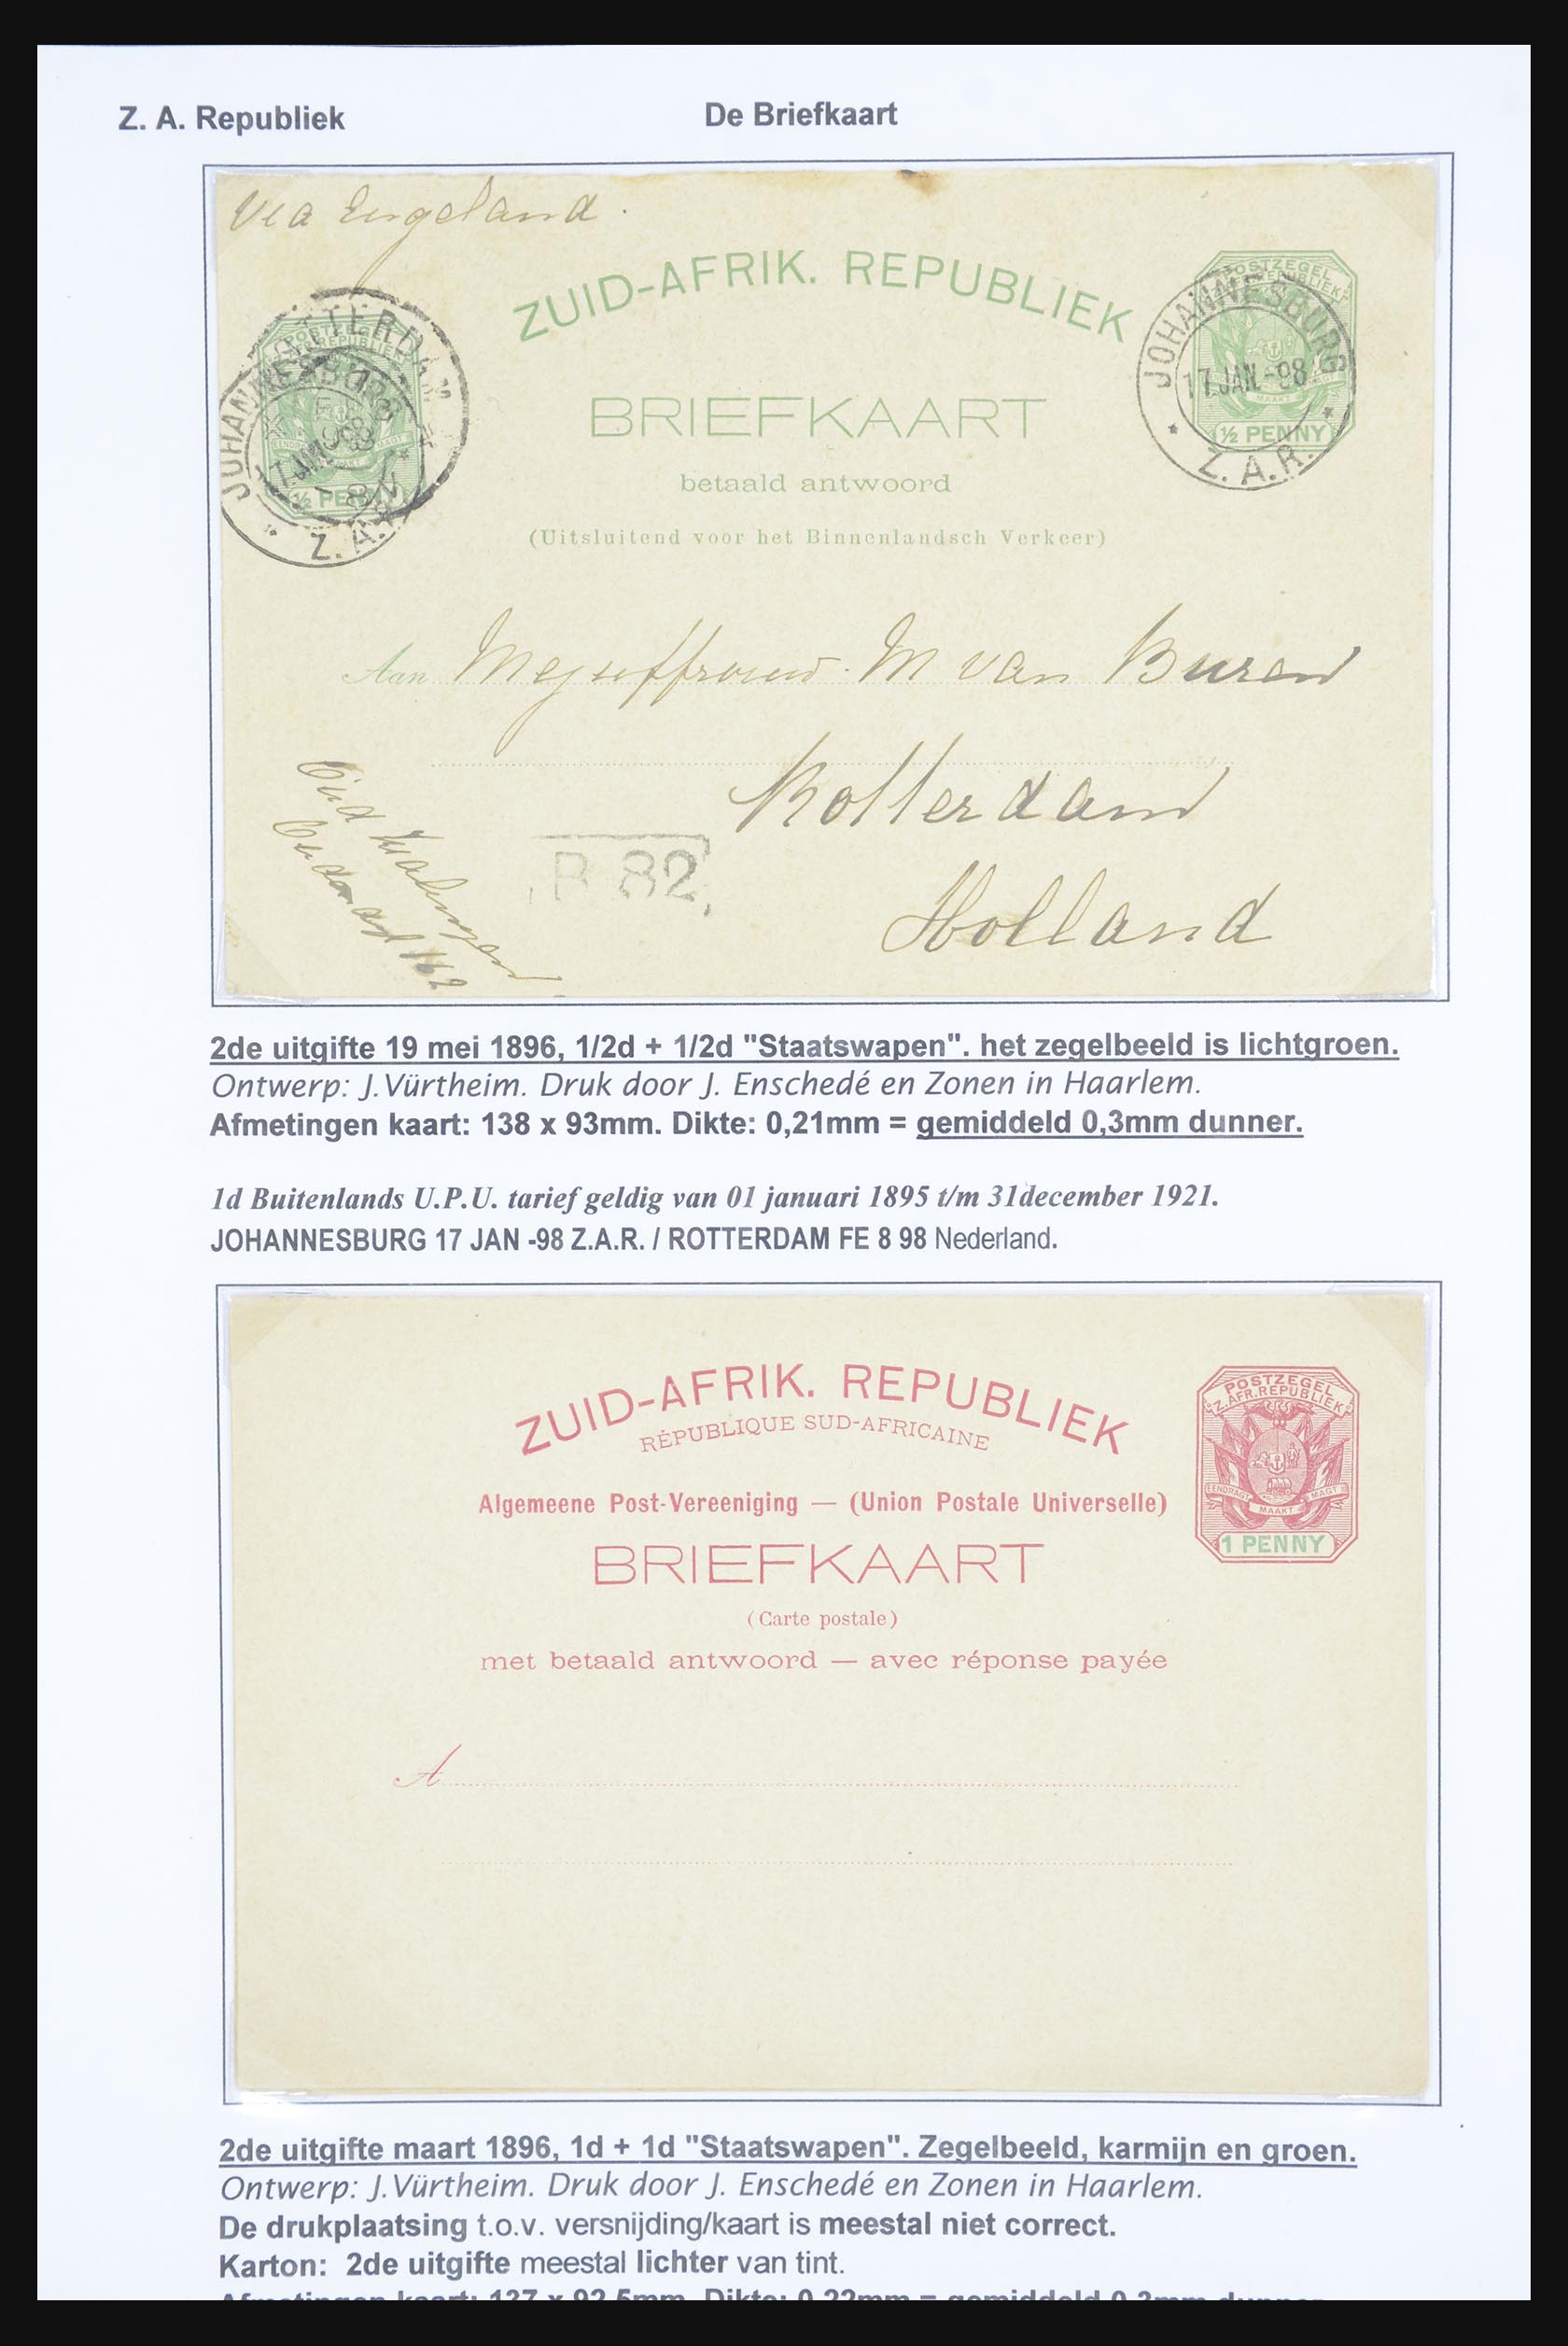 Z. A. Republiek
De Briefkaart
Via Engeland.
ZUID-AFRIK. REPUBLIEK
POSTZEGEL
Z.AFR.REPUBLIEK
JOHANNESBURG
17 JAN.-98
Z.A.R.
½ PENNY
ROTTERDAM
JOHANNESBURG
17 JAN
Z.A.R.
½ PENNY
BRIEFKAART
betaald antwoord
(Uitsluitend voor het Binnenlandsch Verkeer)
Aan Mejuffrouw M van Buren
Rotterdam
Holland
162
B 82
2de uitgifte 19 mei 1896, 1/2d + 1/2d "Staatswapen". het zegelbeeld is lichtgroen.
Ontwerp: J.Vürtheim. Druk door J. Enschedé en Zonen in Haarlem.
Afmetingen kaart: 138 x 93mm. Dikte: 0,21mm = gemiddeld 0,3mm dunner.
1d Buitenlands U.P.U. tarief geldig van 01 januari 1895 t/m 31december 1921.
JOHANNESBURG 17 JAN -98 Z.A.R. / ROTTERDAM FE 8 98 Nederland.
ZUID-AFRIK. REPUBLIEK
RÉPUBLIQUE SUD-AFRICAINE
POSTZEGEL
Z.AFR.REPUBLIEK
EENDRAGT MAAKT MAGT
1 PENNY
Algemeene Post-Vereeniging — (Union Postale Universelle)
BRIEFKAART
(Carte postale)
met betaald antwoord — avec réponse payée
A
2de uitgifte maart 1896, 1d + 1d "Staatswapen". Zegelbeeld, karmijn en groen.
Ontwerp: J.Vürtheim. Druk door J. Enschedé en Zonen in Haarlem.
De drukplaatsing t.o.v. versnijding/kaart is meestal niet correct.
Karton: 2de uitgifte meestal lichter van tint.
Afmetingen kaart: 137 x 92,5mm. Dikte: 0,22mm = gemiddeld 0,3mm dunner.